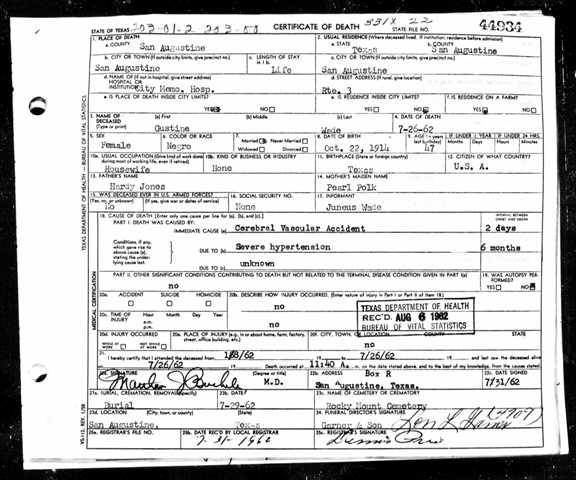 STATE OF TEXAS 203-01-2 203-00 CERTIFICATE OF DEATH 331X 22 44934
1. PLACE OF DEATH 2. USUAL RESIDENCE (Where deceased lived. If institution: residence before admission)
a. COUNTY San Augustine a. STATE Texas b. COUNTY San Augustine
b. CITY OR TOWN (If outside city limits, give precinct no.) c. LENGTH OF STAY in 1 b. c. CITY OR TOWN (If outside city limits, give precinct no.)
San Augustine Life San Augustine
d. NAME OF (If not in hospital, give street address) HOSPITAL OR INSTITUTION City Memo. Hosp. d. STREET ADDRESS (If rural, give location) Rte. 3
e. IS PLACE OF DEATH INSIDE CITY LIMITS? YES NO e. IS RESIDENCE INSIDE CITY LIMITS? YES NO f. IS RESIDENCE ON A FARM? YES NO
3. NAME OF DECEASED (Type or print) (a) First (b) Middle (c) Last 4. DATE OF DEATH
Gustine Wade 7-26-62
5. SEX 6. COLOR OR RACE 7. Married Never Married Widowed Divorced 8. DATE OF BIRTH 9. AGE (In years last birthday) IF UNDER 1 YEAR Months Days IF UNDER 24 HRS. Hours Min.
Female Negro Oct. 22, 1914 47
10a. USUAL OCCUPATION (Give kind of work done during most of working life, even if retired) 10b. KIND OF BUSINESS OR INDUSTRY 11. BIRTHPLACE (State or foreign country) 12. CITIZEN OF WHAT COUNTRY?
Housewife Home Texas U.S. A.
13. FATHER'S NAME 14. MOTHER'S MAIDEN NAME
Hardy Jones Pearl Polk
15. WAS DECEASED EVER IN U.S. ARMED FORCES? (Yes, no, or unknown) (If yes, give war or dates of service) 16. SOCIAL SECURITY NO. 17. INFORMANT
No None Juneus Wade
18. CAUSE OF DEATH [Enter only one cause per line for (a), (b), and (c).] INTERVAL BETWEEN ONSET AND DEATH
PART I. DEATH WAS CAUSED BY:
IMMEDIATE CAUSE (a) Cerebral Vascular Accident 2 days
Conditions, if any, which gave rise to above cause (a), stating the underlying cause last.
DUE TO (b) Severe hypertension 6 months
DUE TO (c) unknown
PART II. OTHER SIGNIFICANT CONDITIONS CONTRIBUTING TO DEATH BUT NOT RELATED TO THE TERMINAL DISEASE CONDITION GIVEN IN PART I(a) 19. WAS AUTOPSY PERFORMED? YES NO
no
20a. ACCIDENT SUICIDE HOMICIDE 20b. DESCRIBE HOW INJURY OCCURRED. (Enter nature of injury in Part I or Part II of item 18.)
no
20c. TIME OF INJURY Hour a.m. p.m. Month Day Year no
TEXAS DEPARTMENT OF HEALTH
REC'D AUG 6 1962
BUREAU OF VITAL STATISTICS
20d. INJURY OCCURRED WHILE AT WORK NOT WHILE AT WORK 20e. PLACE OF INJURY (e.g., in or about home, farm, factory, street, office building, etc.) 20f. CITY, TOWN, OR
no
21. I hereby certify that I attended the deceased from 19 to 7/26/62 19 and last saw the deceased alive
7/26/62 19 Death occurred at 11:40 A. m. on the date stated above, and to the best of my knowledge, from the causes stated.
22a. SIGNATURE (Degree or title) M.D. 22b. ADDRESS Box R San Augustine, Texas. 22c. DATE SIGNED 7/31/62
23a. BURIAL, CREMATION, REMOVAL (Specify) 23b. DATE 23c. NAME OF CEMETERY OR CREMATORY
Burial 7-29-62 Rocky Mount Cemetery
23d. LOCATION (City, town, or county) (State) 24. FUNERAL DIRECTOR'S SIGNATURE
San Augustine, Texas Garner & Son (4707)
25a. REGISTRAR'S FILE NO. 25b. DATE REC'D BY LOCAL REGISTRAR 25c. REGISTRAR'S SIGNATURE
7-31-1962
TEXAS DEPARTMENT OF HEALTH - BUREAU OF VITAL STATISTICS
MEDICAL CERTIFICATION